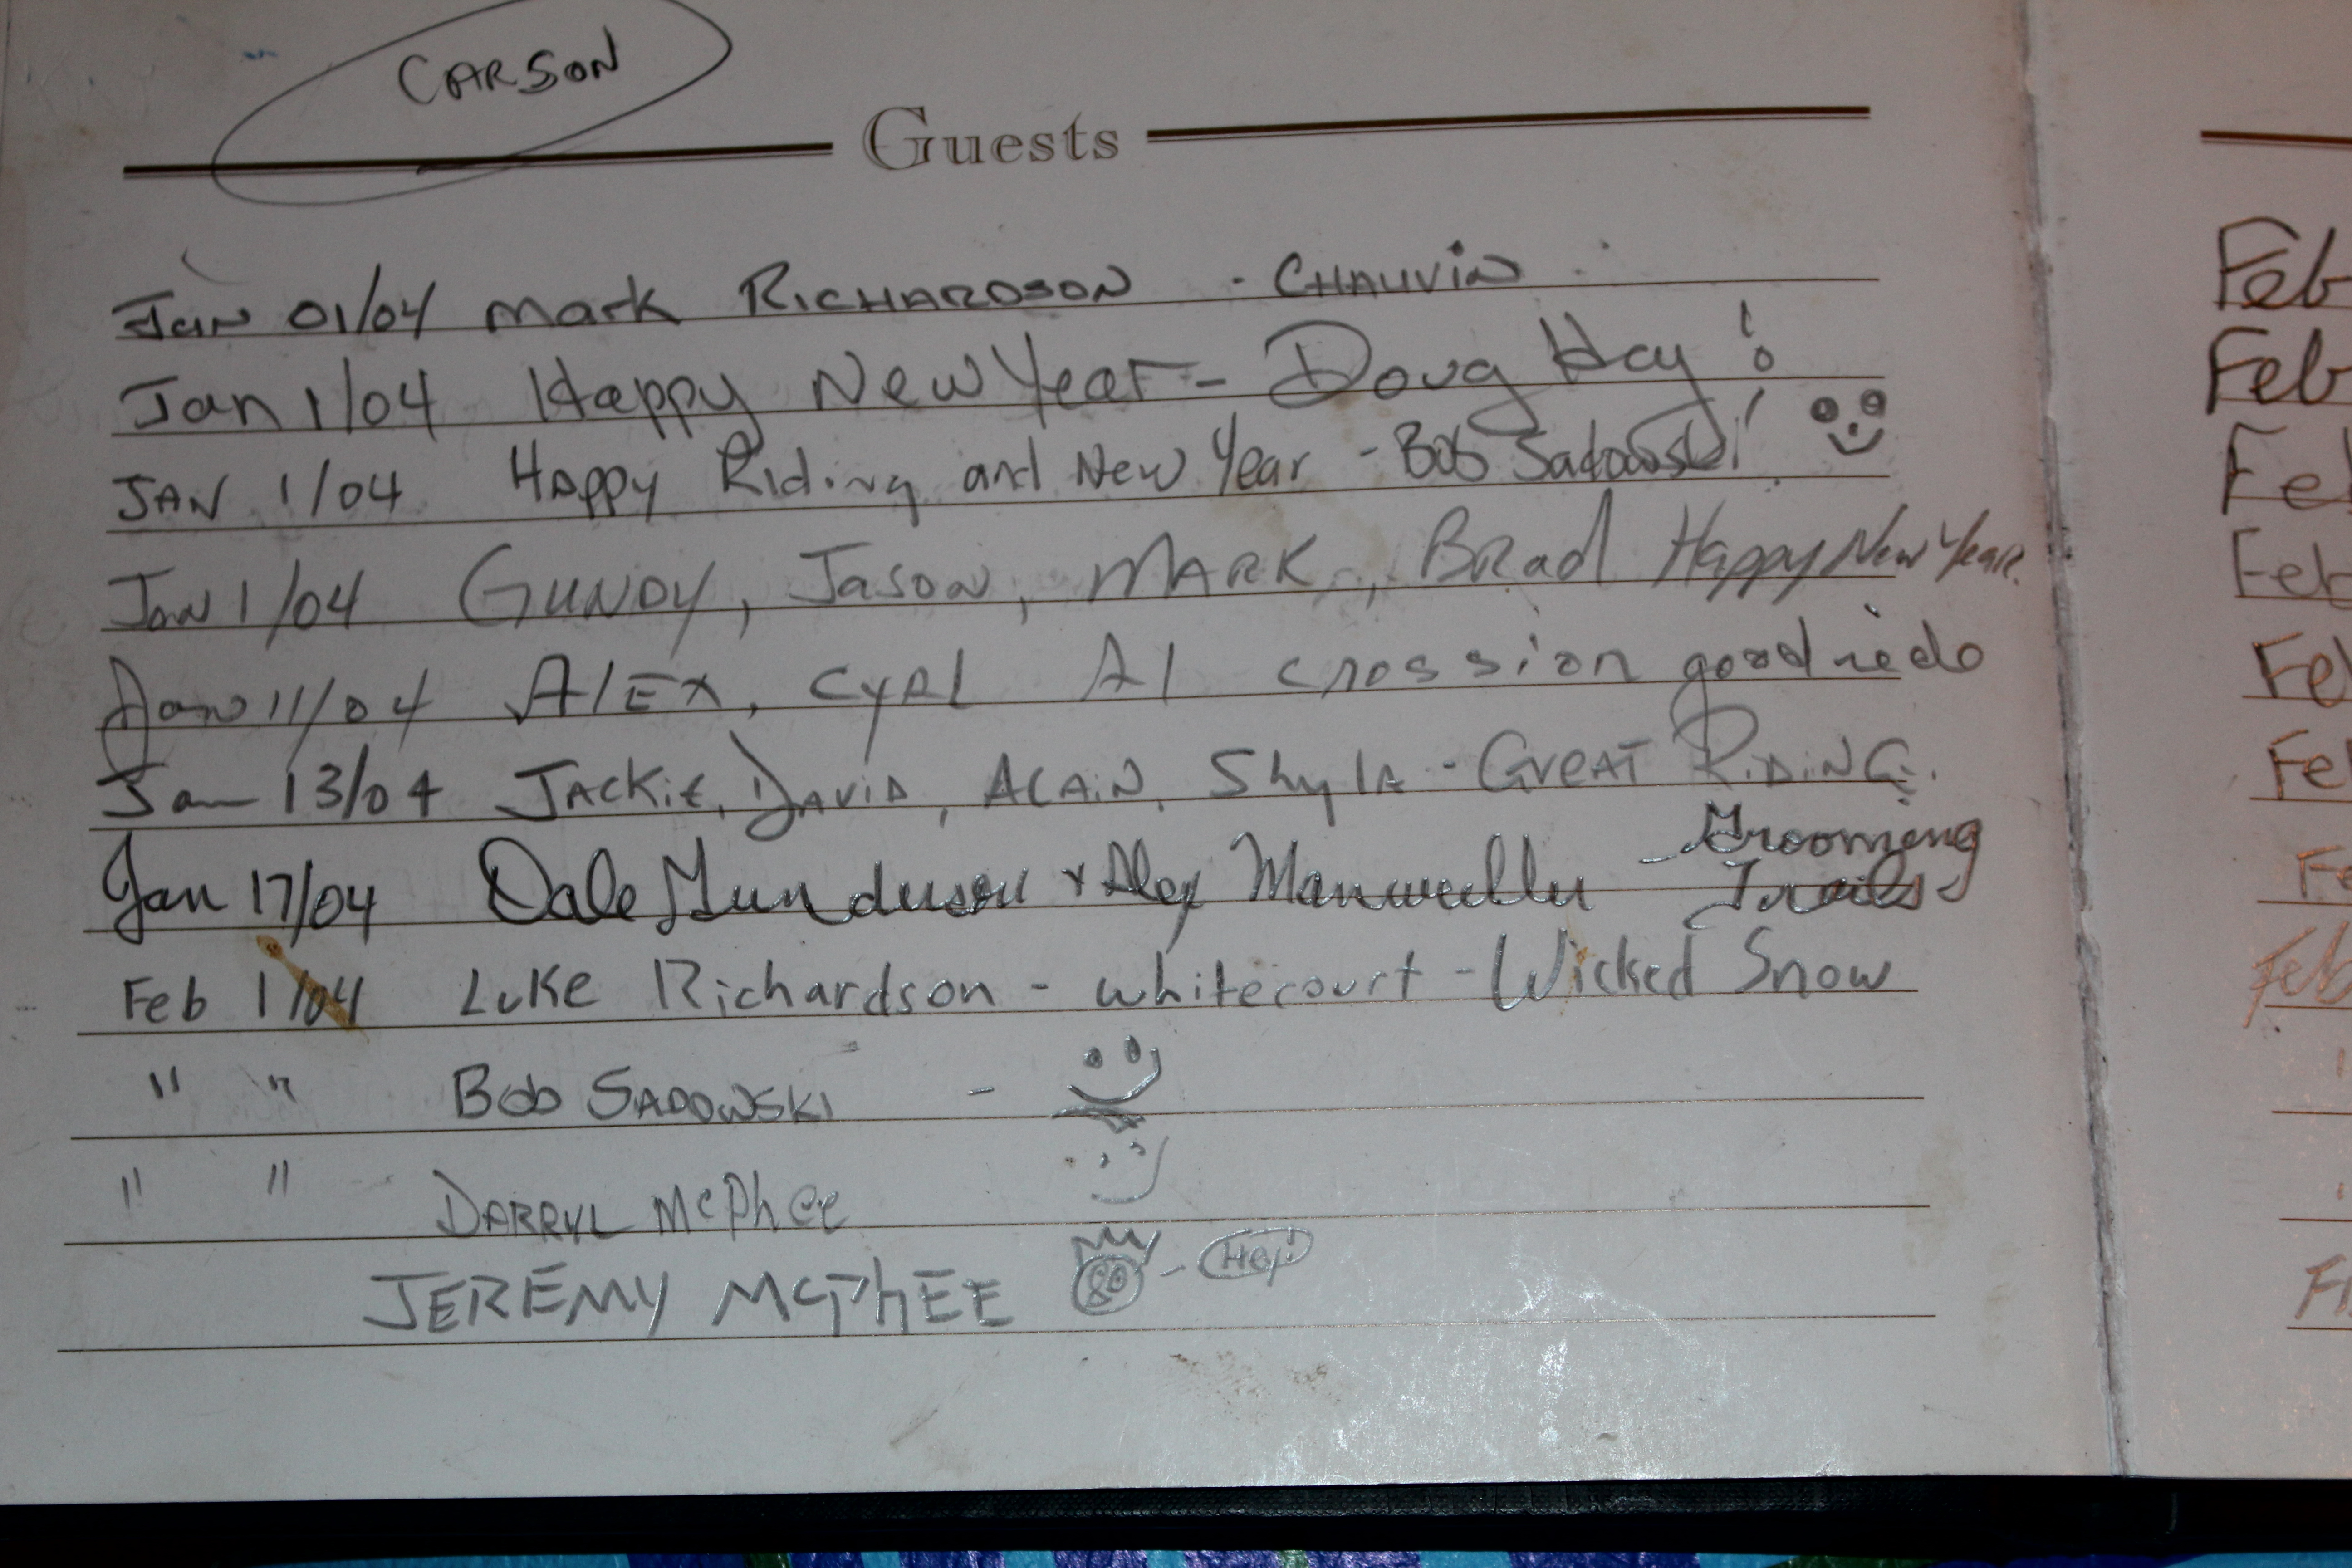 CARSON
Guests
Jan 01/04 Mark RICHARDSON - CHAUVIN
Jan 1/04 Happy New Year - Doug Hay!
JAN 1/04 Happy Riding and New Year - Bob Sadowski!
Jan 1/04 GUNDY, Jason, MARK, Brad Happy New Year.
Jan 11/04 AlEX, CyRl Al crossion good
Jan 13/04 JACKiE, DAViD, ALAiN, Shyla - GREAT RiDiNG.
Jan 17/04 Dale Gunderson + Alex - Grooming
Trails
Feb 1/04 Luke Richardson - whitecourt - Wicked Snow
" " Bob SADOWSKI -
" " DARRYL McPhee
JEREMY McPhEE - Hey!
Feb
Feb
Fe
Feb
Fe
Fe
Fe
Feb